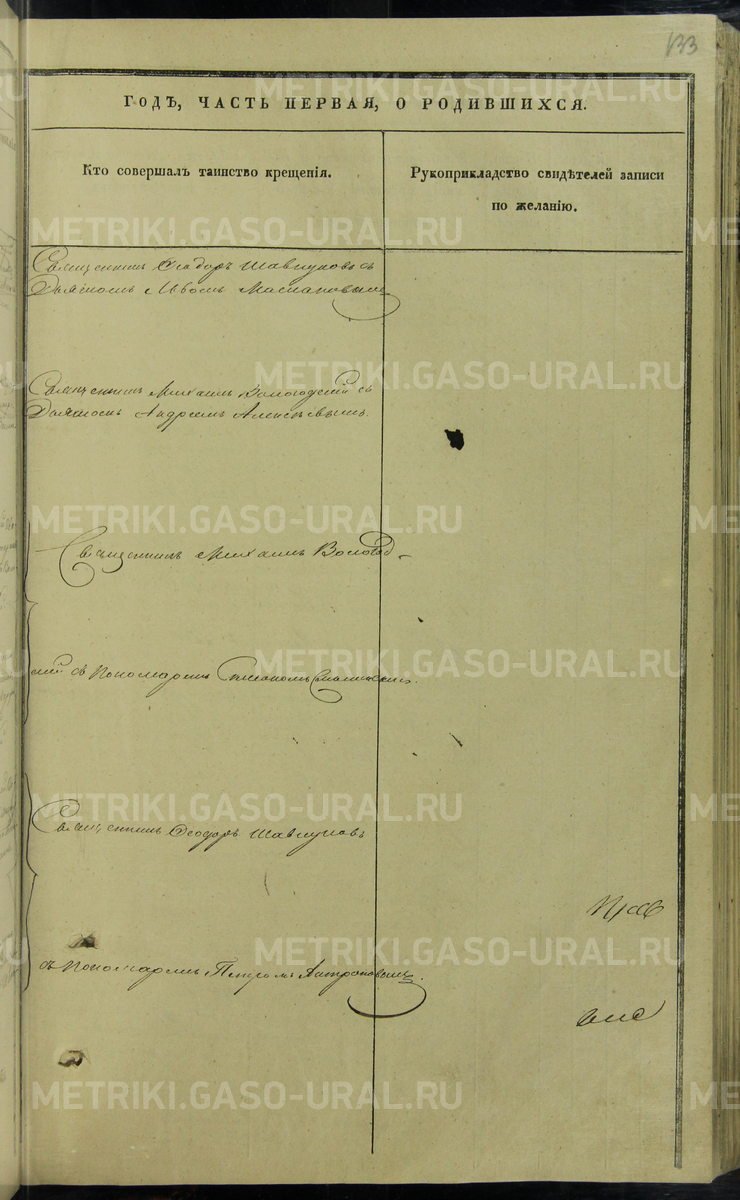 133
ГОДЪ, ЧАСТЬ ПЕРВАЯ, О РОДИВШИХСЯ.
Кто совершалъ таинство крещенія.
Рукоприкладство свидѣтелей записи
по желанію.
Священникъ Ѳеодоръ Шавкуновъ съ
Дьякономъ
Священникъ Михаилъ Вологодскій съ
Дьякономъ Андреемъ Алексѣевымъ.
Священникъ Михаилъ Вологод-
скій съ Пономаремъ Стефаномъ
Священникъ Ѳеодоръ Шавкуновъ
съ Пономаремъ Петромъ Антроповымъ.
METRIKI.GASO-URAL.RU